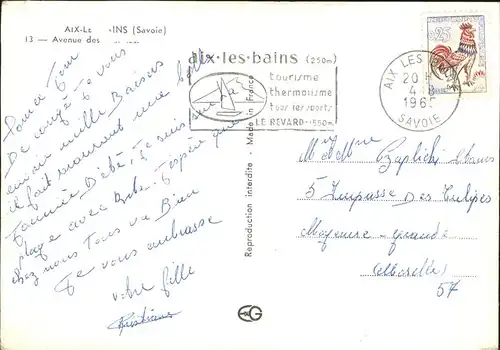 AIX-LE INS (Savoie)
13 — Avenue des
aix·les·bains (250m)
tourisme
thermalisme
tous les sports
LE REVARD 1550m
AIX LES BAINS
20 H
4-8
1965
SAVOIE
0,25
Pour ce Jour
De congé Je vous
envoie mille Baisers
il fait vraiment une belle
Journée D'été. Je suis à la
plage avec . J'espère que
chez nous Tous va Bien
Je vous embrasse
votre fille
Reproduction interdite - Made in France
M et Mme Czaplicki
5 Impasse Des Tulipes
Moyeuvre - grande
(Moselle)
57